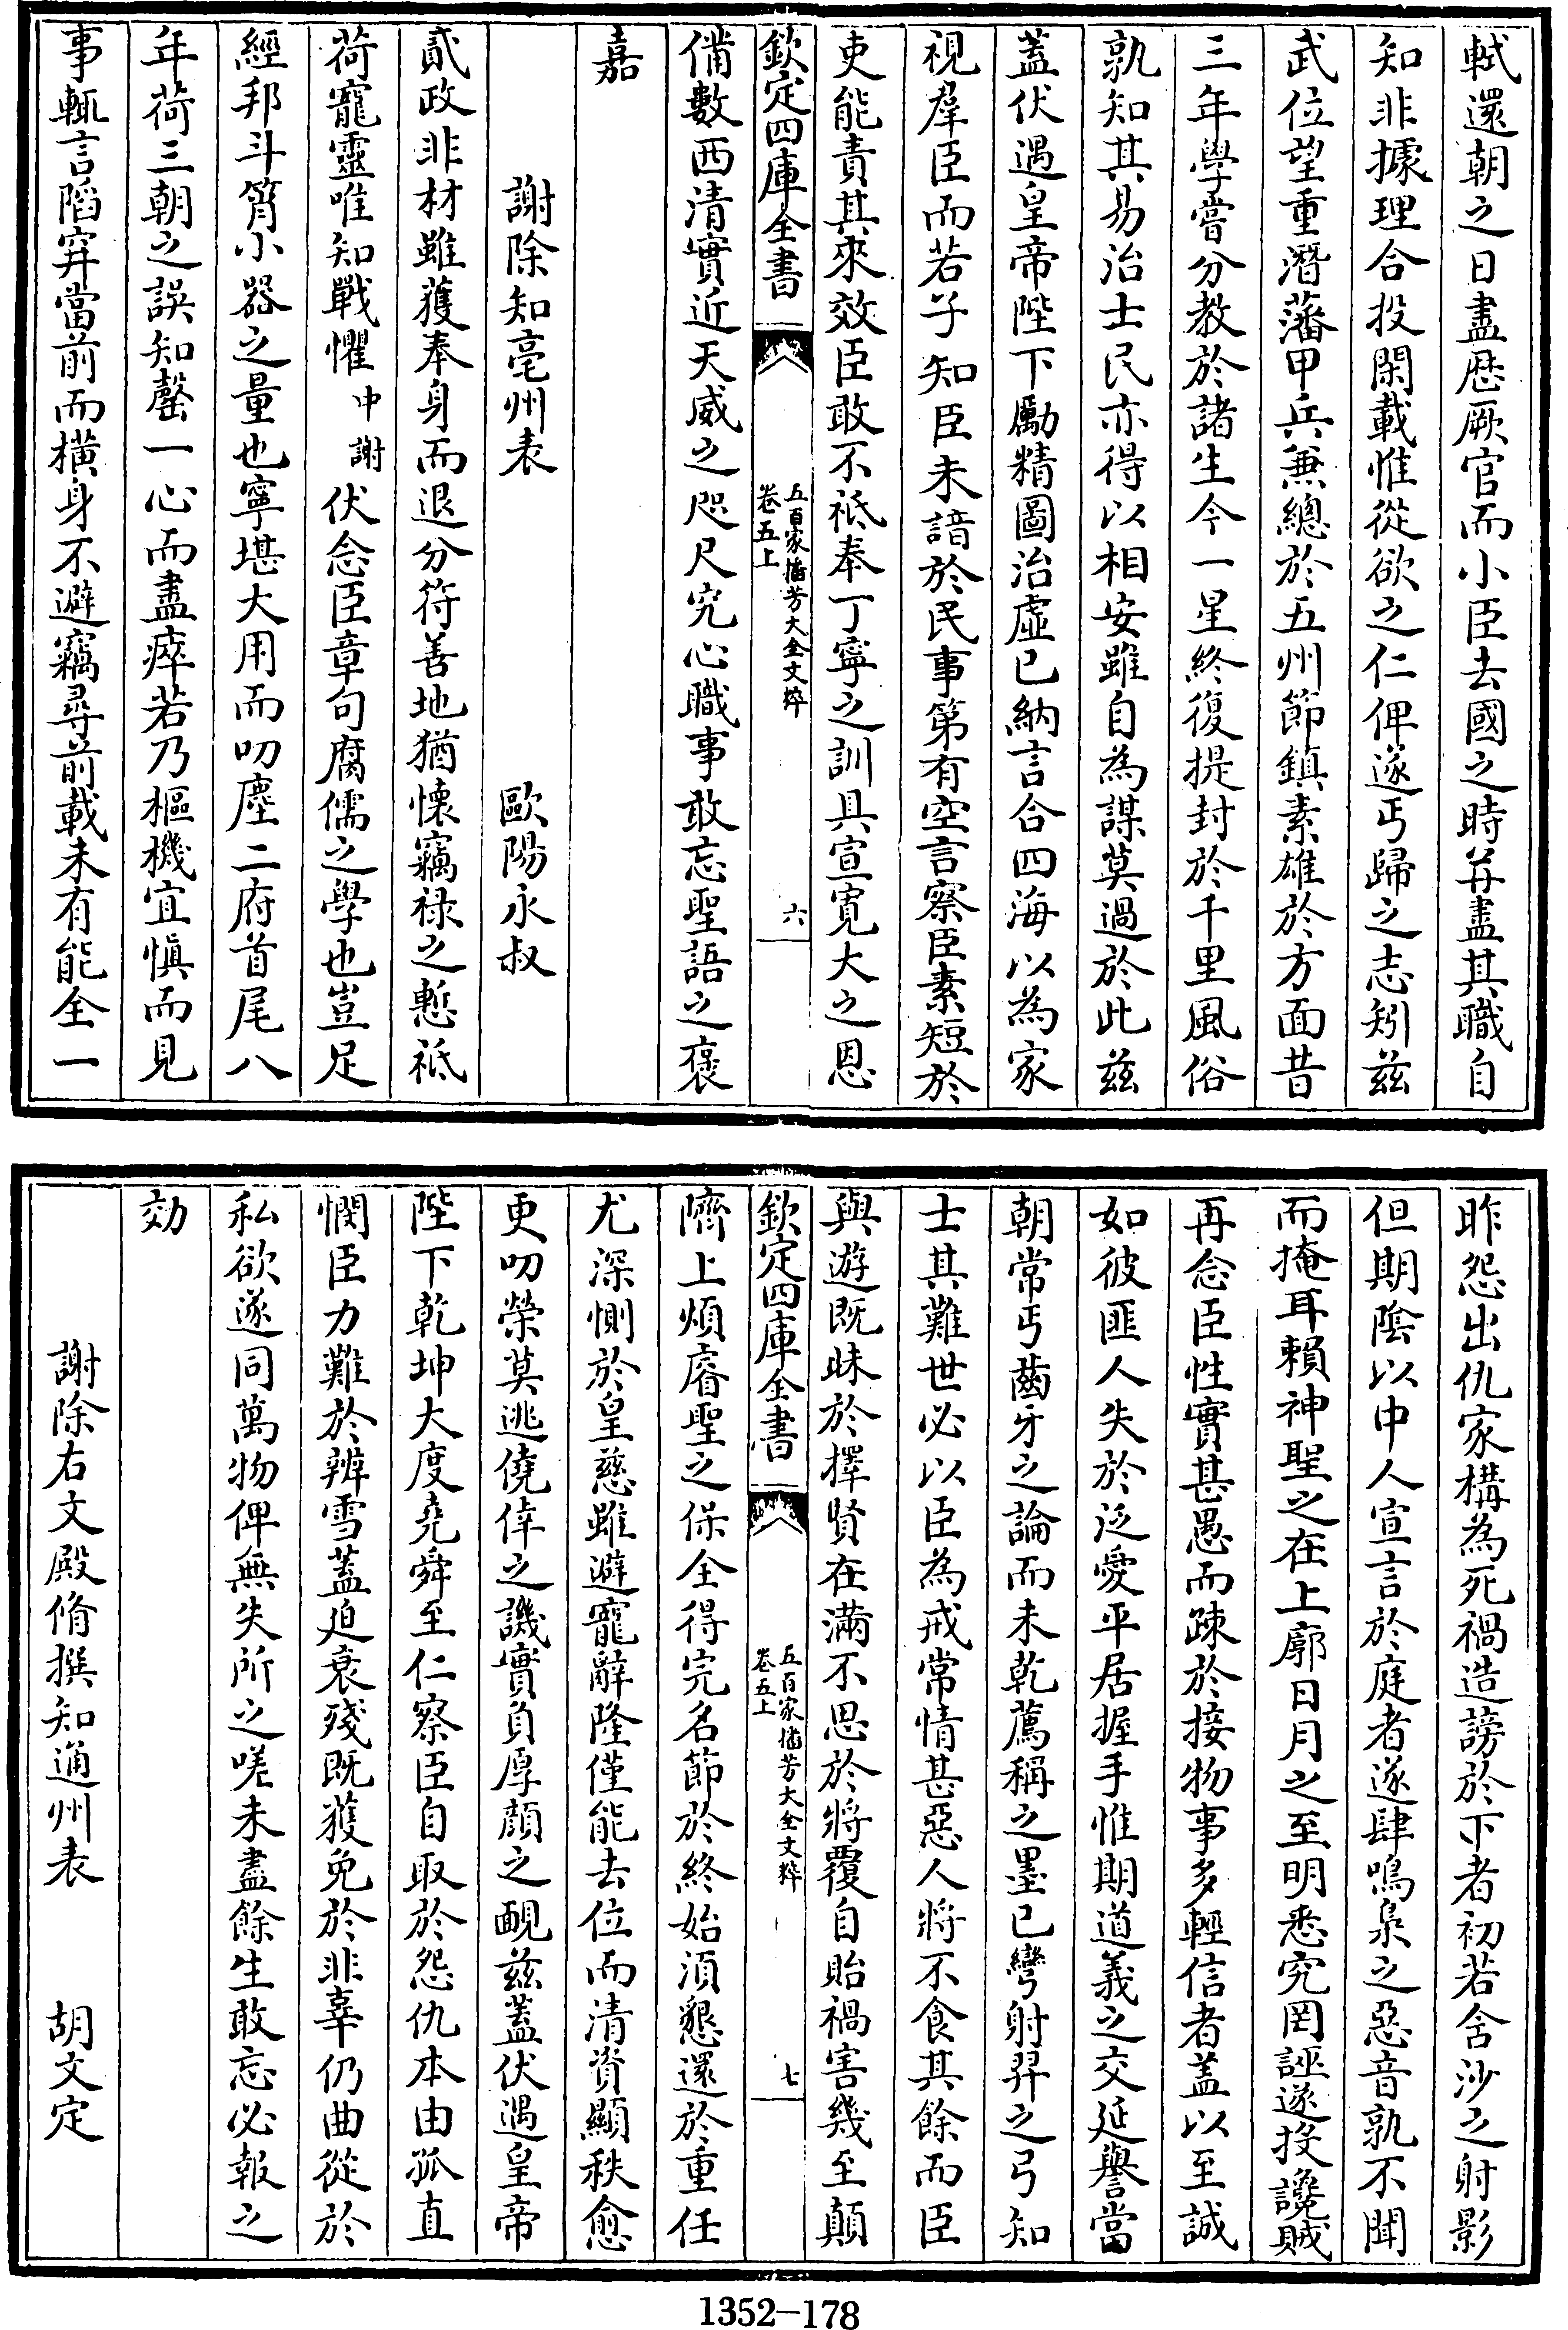 軾還朝之日盡歷厥官而小臣去國之時并盡其職自
知非據理合投閑載惟從欲之仁俾遂丐歸之志矧茲
武位望重潛藩甲兵兼總於五州節鎮素雄於方面昔
三年學嘗分教於諸生今一星終復提封於千里風俗
孰知其易治士民亦得以相安雖自為謀莫過於此茲
蓋伏遇皇帝陛下勵精圖治虛已納言合四海以為家
視羣臣而若子知臣未諳於民事第有空言察臣素短於
吏能責其來效臣敢不祗奉丁寧之訓具宣寬大之恩
欽定四庫全書
五百家播芳大全文粹
卷五上
六
備數西清實近天威之咫尺究心職事敢忘聖語之褒
嘉
謝除知亳州表 歐陽永叔
貳政非材雖獲奉身而退分符善地猶懷竊祿之慙祗
荷寵靈唯知戰懼中謝伏念臣章句腐儒之學也豈足
經邦斗筲小器之量也寧堪大用而叨塵二府首尾八
年荷三朝之誤知罄一心而盡瘁若乃樞機宜慎而見
事輒言陷穽當前而橫身不避竊尋前載未有能全一
昨怨出仇家構為死禍造謗於下者初若含沙之射影
但期陰以中人宣言於庭者遂肆鳴梟之惡音孰不聞
而掩耳賴神聖之在上廓日月之至明悉究罔誣遂投讒賊
再念臣性實甚愚而疎於接物事多輕信者蓋以至誠
如彼匪人失於泛愛平居握手惟期道義之交延譽當
朝常丐齒牙之論而未乾薦稱之墨已彎射羿之弓知
士其難世必以臣為戒常情甚惡人將不食其餘而臣
與遊既昧於擇賢在滿不思於將覆自貽禍害幾至顛
欽定四庫全書
五百家播芳大全文粹
卷五上
七
隮上煩睿聖之保全得完名節於終始湏懇還於重任
尤深惻於皇慈雖避寵辭隆僅能去位而清資顯秩愈
更叨榮莫逃僥倖之譏實負厚顔之靦茲蓋伏遇皇帝
陛下乾坤大度堯舜至仁察臣自取於怨仇本由孤直
憫臣力難於辨雪蓋迫衰殘既獲免於非辜仍曲從於
私欲遂同萬物俾無失所之嗟未盡餘生敢忘必報之
効
謝除右文殿脩撰知通州表 胡文定
1352-178